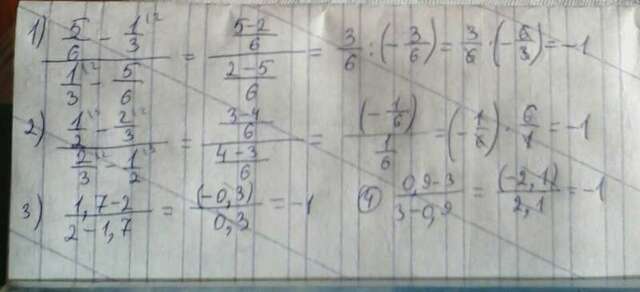 1) (5/6 - 1/3) / (1/3 - 5/6) = ((5-2)/6) / ((2-5)/6) = 3/6 : (-3/6) = 3/6 · (-6/3) = -1
2) (1/2 - 2/3) / (2/3 - 1/2) = ((3-4)/6) / ((4-3)/6) = (-1/6) / (1/6) = (-1/6) · 6/1 = -1
3) (1,7-2) / (2-1,7) = (-0,3) / 0,3 = -1
4) (0,9-3) / (3-0,9) = (-2,1) / 2,1 = -1